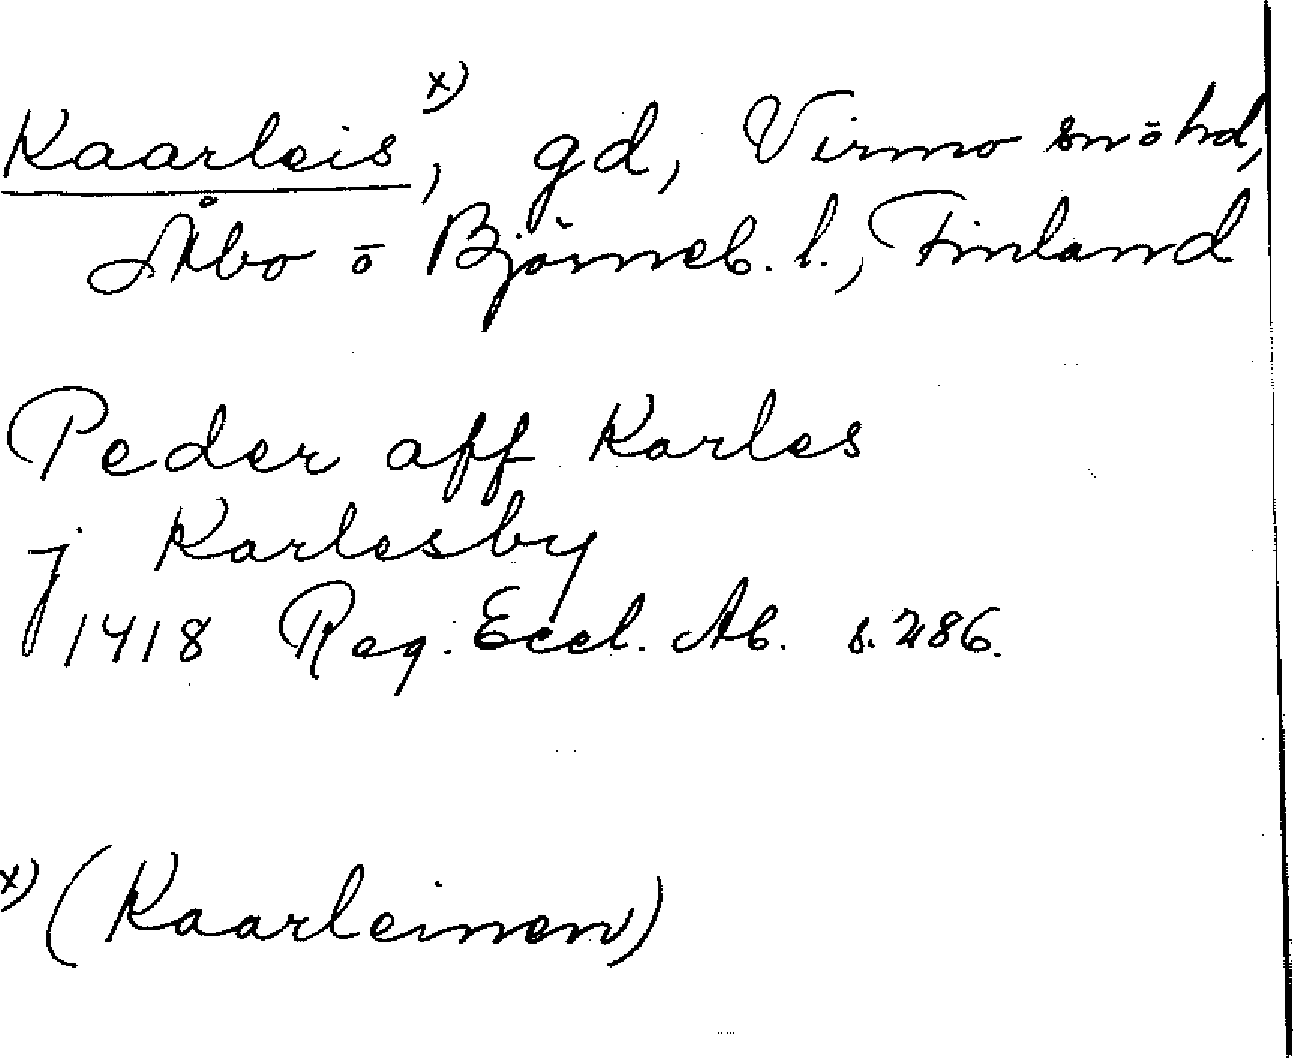 Kaarleis x), gd, Virmo sn ō hd,
Åbo ō Björneb. l., Finland
Peder aff Karles
j Karlesby
1418 Reg. Eccl. Ab. s. 286.
x) (Kaarleinen)